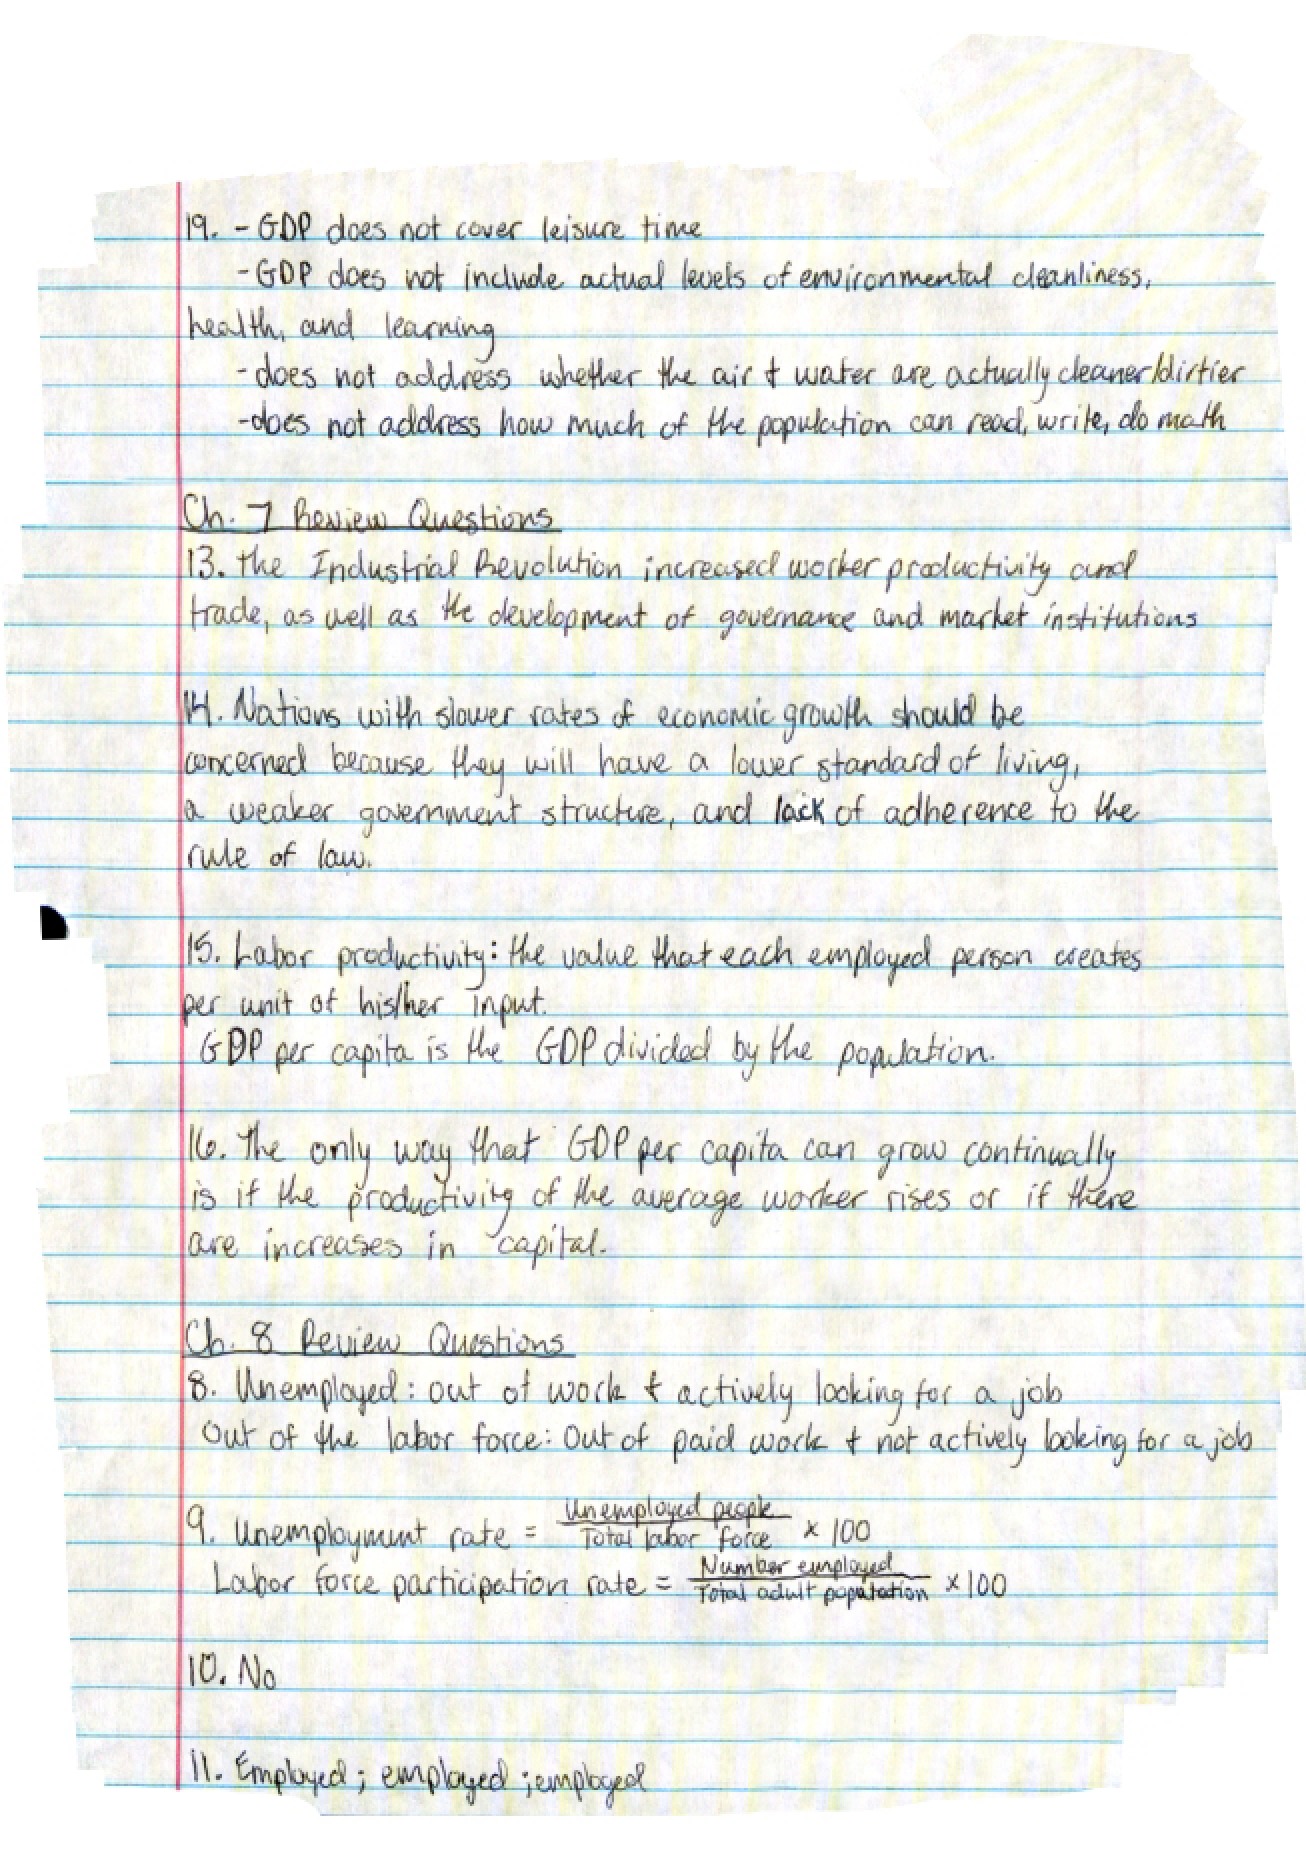 19. - GDP does not cover leisure time
- GDP does not include actual levels of environmental cleanliness,
health, and learning
- does not address whether the air & water are actually cleaner/dirtier
- does not address how much of the population can read, write, do math
Ch. 7 Review Questions
13. The Industrial Revolution increased worker productivity and
trade, as well as the development of governance and market institutions
14. Nations with slower rates of economic growth should be
concerned because they will have a lower standard of living,
a weaker government structure, and lack of adherence to the
rule of law.
15. Labor productivity: the value that each employed person creates
per unit of his/her input.
GDP per capita is the GDP divided by the population.
16. The only way that GDP per capita can grow continually
is if the productivity of the average worker rises or if there
are increases in capital.
Ch. 8 Review Questions
8. Unemployed: out of work & actively looking for a job
Out of the labor force: Out of paid work & not actively looking for a job
9. Unemployment rate = Unemployed people / Total labor force × 100
Labor force participation rate = Number employed / Total adult population × 100
10. No
11. Employed; employed; employed